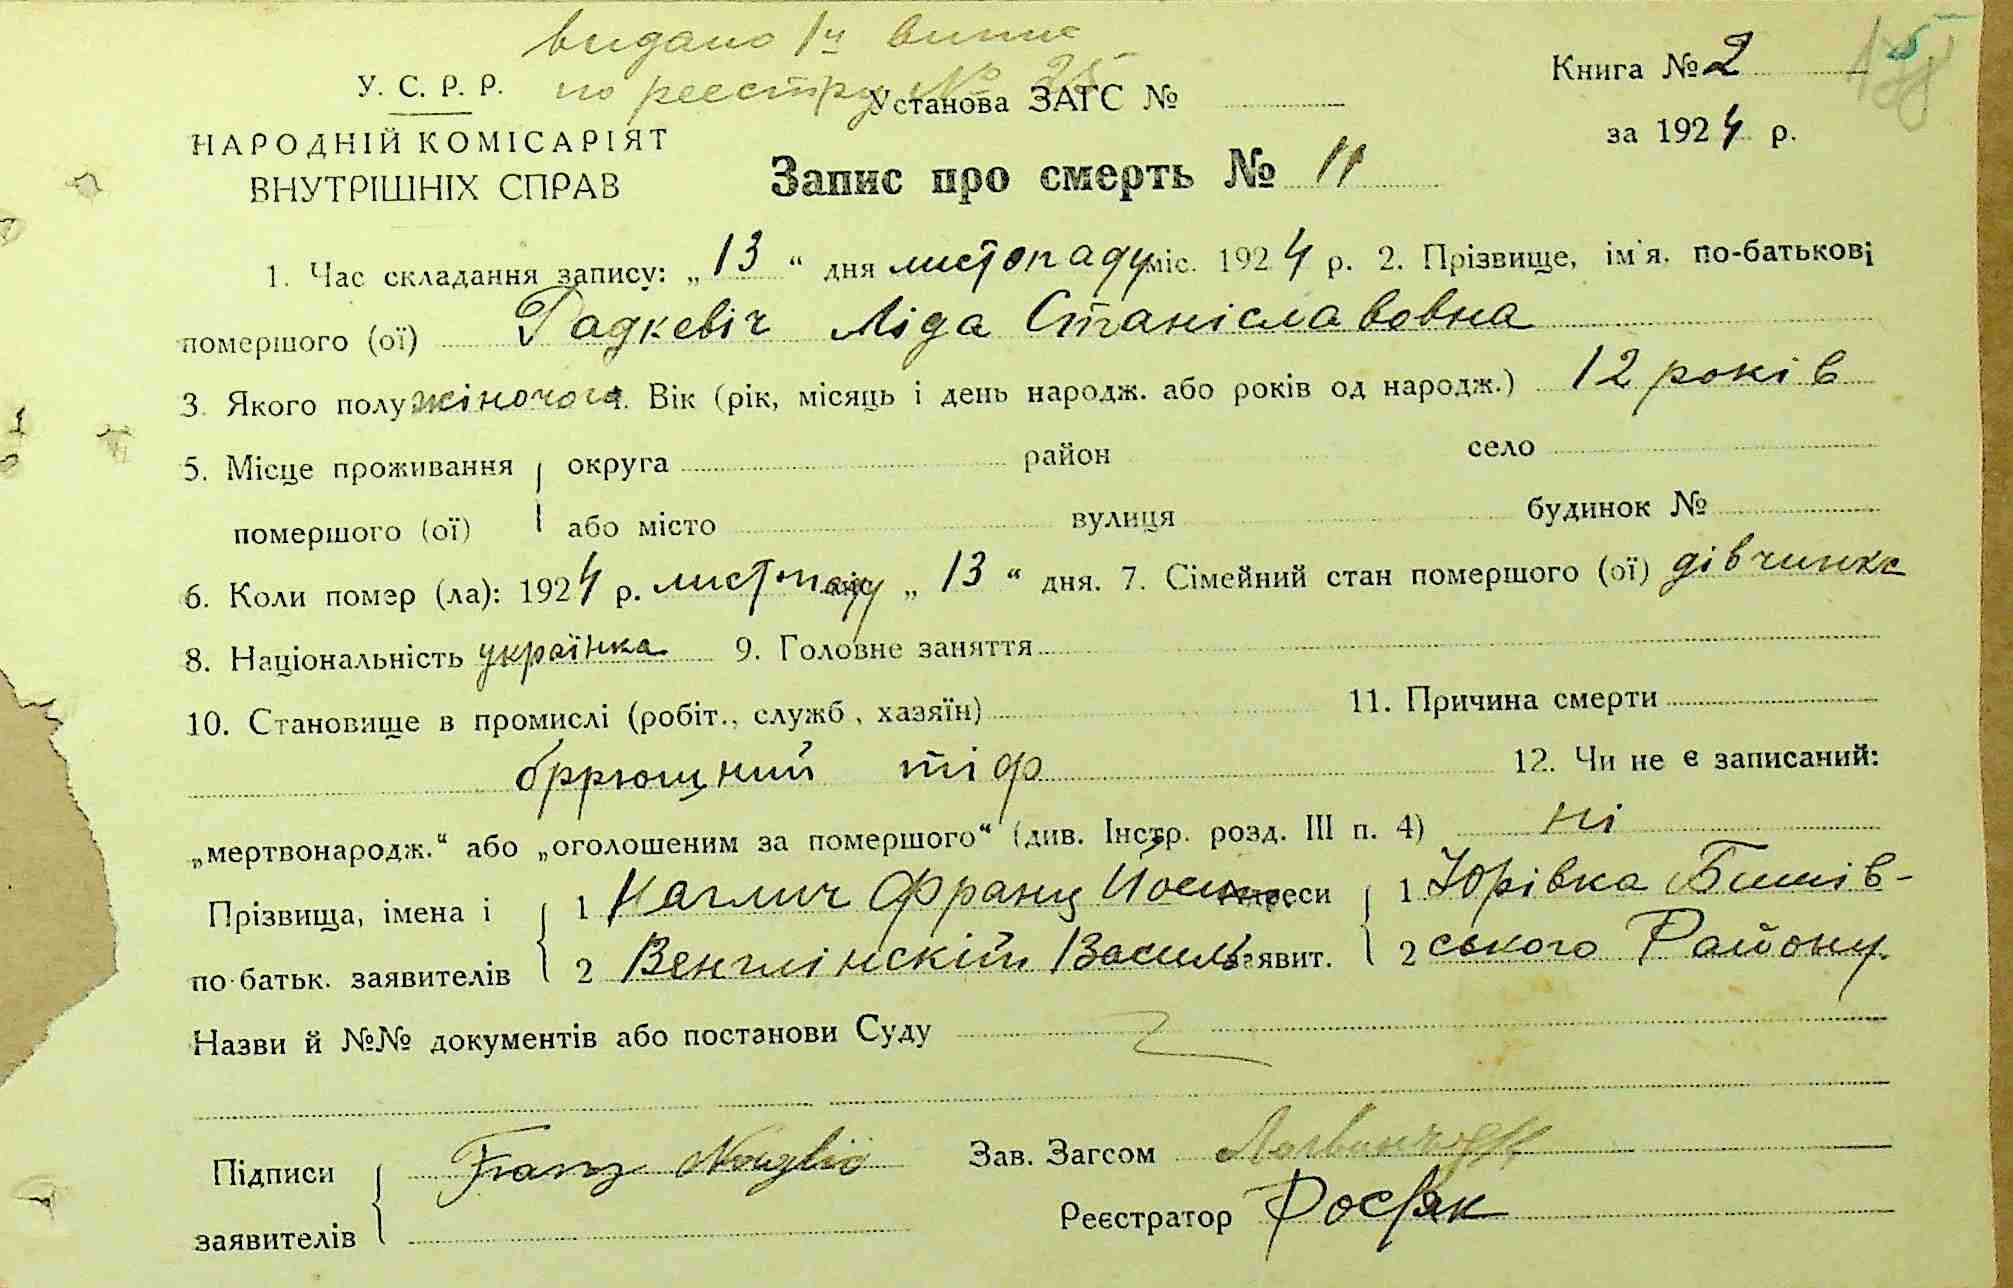 видано 1й випис
по реестру № 25
Книга № 2
У. С. Р. Р.
Установа ЗАГС №
за 1924 р.
НАРОДНІЙ КОМІСАРІЯТ
ВНУТРІШНІХ СПРАВ
Запис про смерть № 11
1. Час складання запису: „13“ дня листопаду міс. 1924 р. 2. Прізвище, ім'я, по-батькові
помершого (ої) Радкевіч Ліда Станіславовна
3. Якого полу жіночого 4. Вік (рік, місяць і день народж. або років од народж.) 12 років
5. Місце проживання округа район село
помершого (ої) або місто вулиця будинок №
6. Коли помер (ла): 1924 р. листопаду міс. „13“ дня. 7. Сімейний стан помершого (ої) дівчинка
8. Національність українка 9. Головне заняття
10. Становище в промислі (робіт., служб., хазяїн) 11. Причина смерти
бррюшний тіф 12. Чи не є записаний:
„мертвонародж.“ або „оголошеним за помершого“ (див. Інстр. розд. III п. 4) ні
Прізвища, імена і 1 Франц Адреси 1 Юрівка Бишів-
по-батьк. заявителів 2 Венглінскій Василь заявит. 2 ського Району.
Назви й №№ документів або постанови Суду
Підписи Franz Зав. Загсом
заявителів Реєстратор